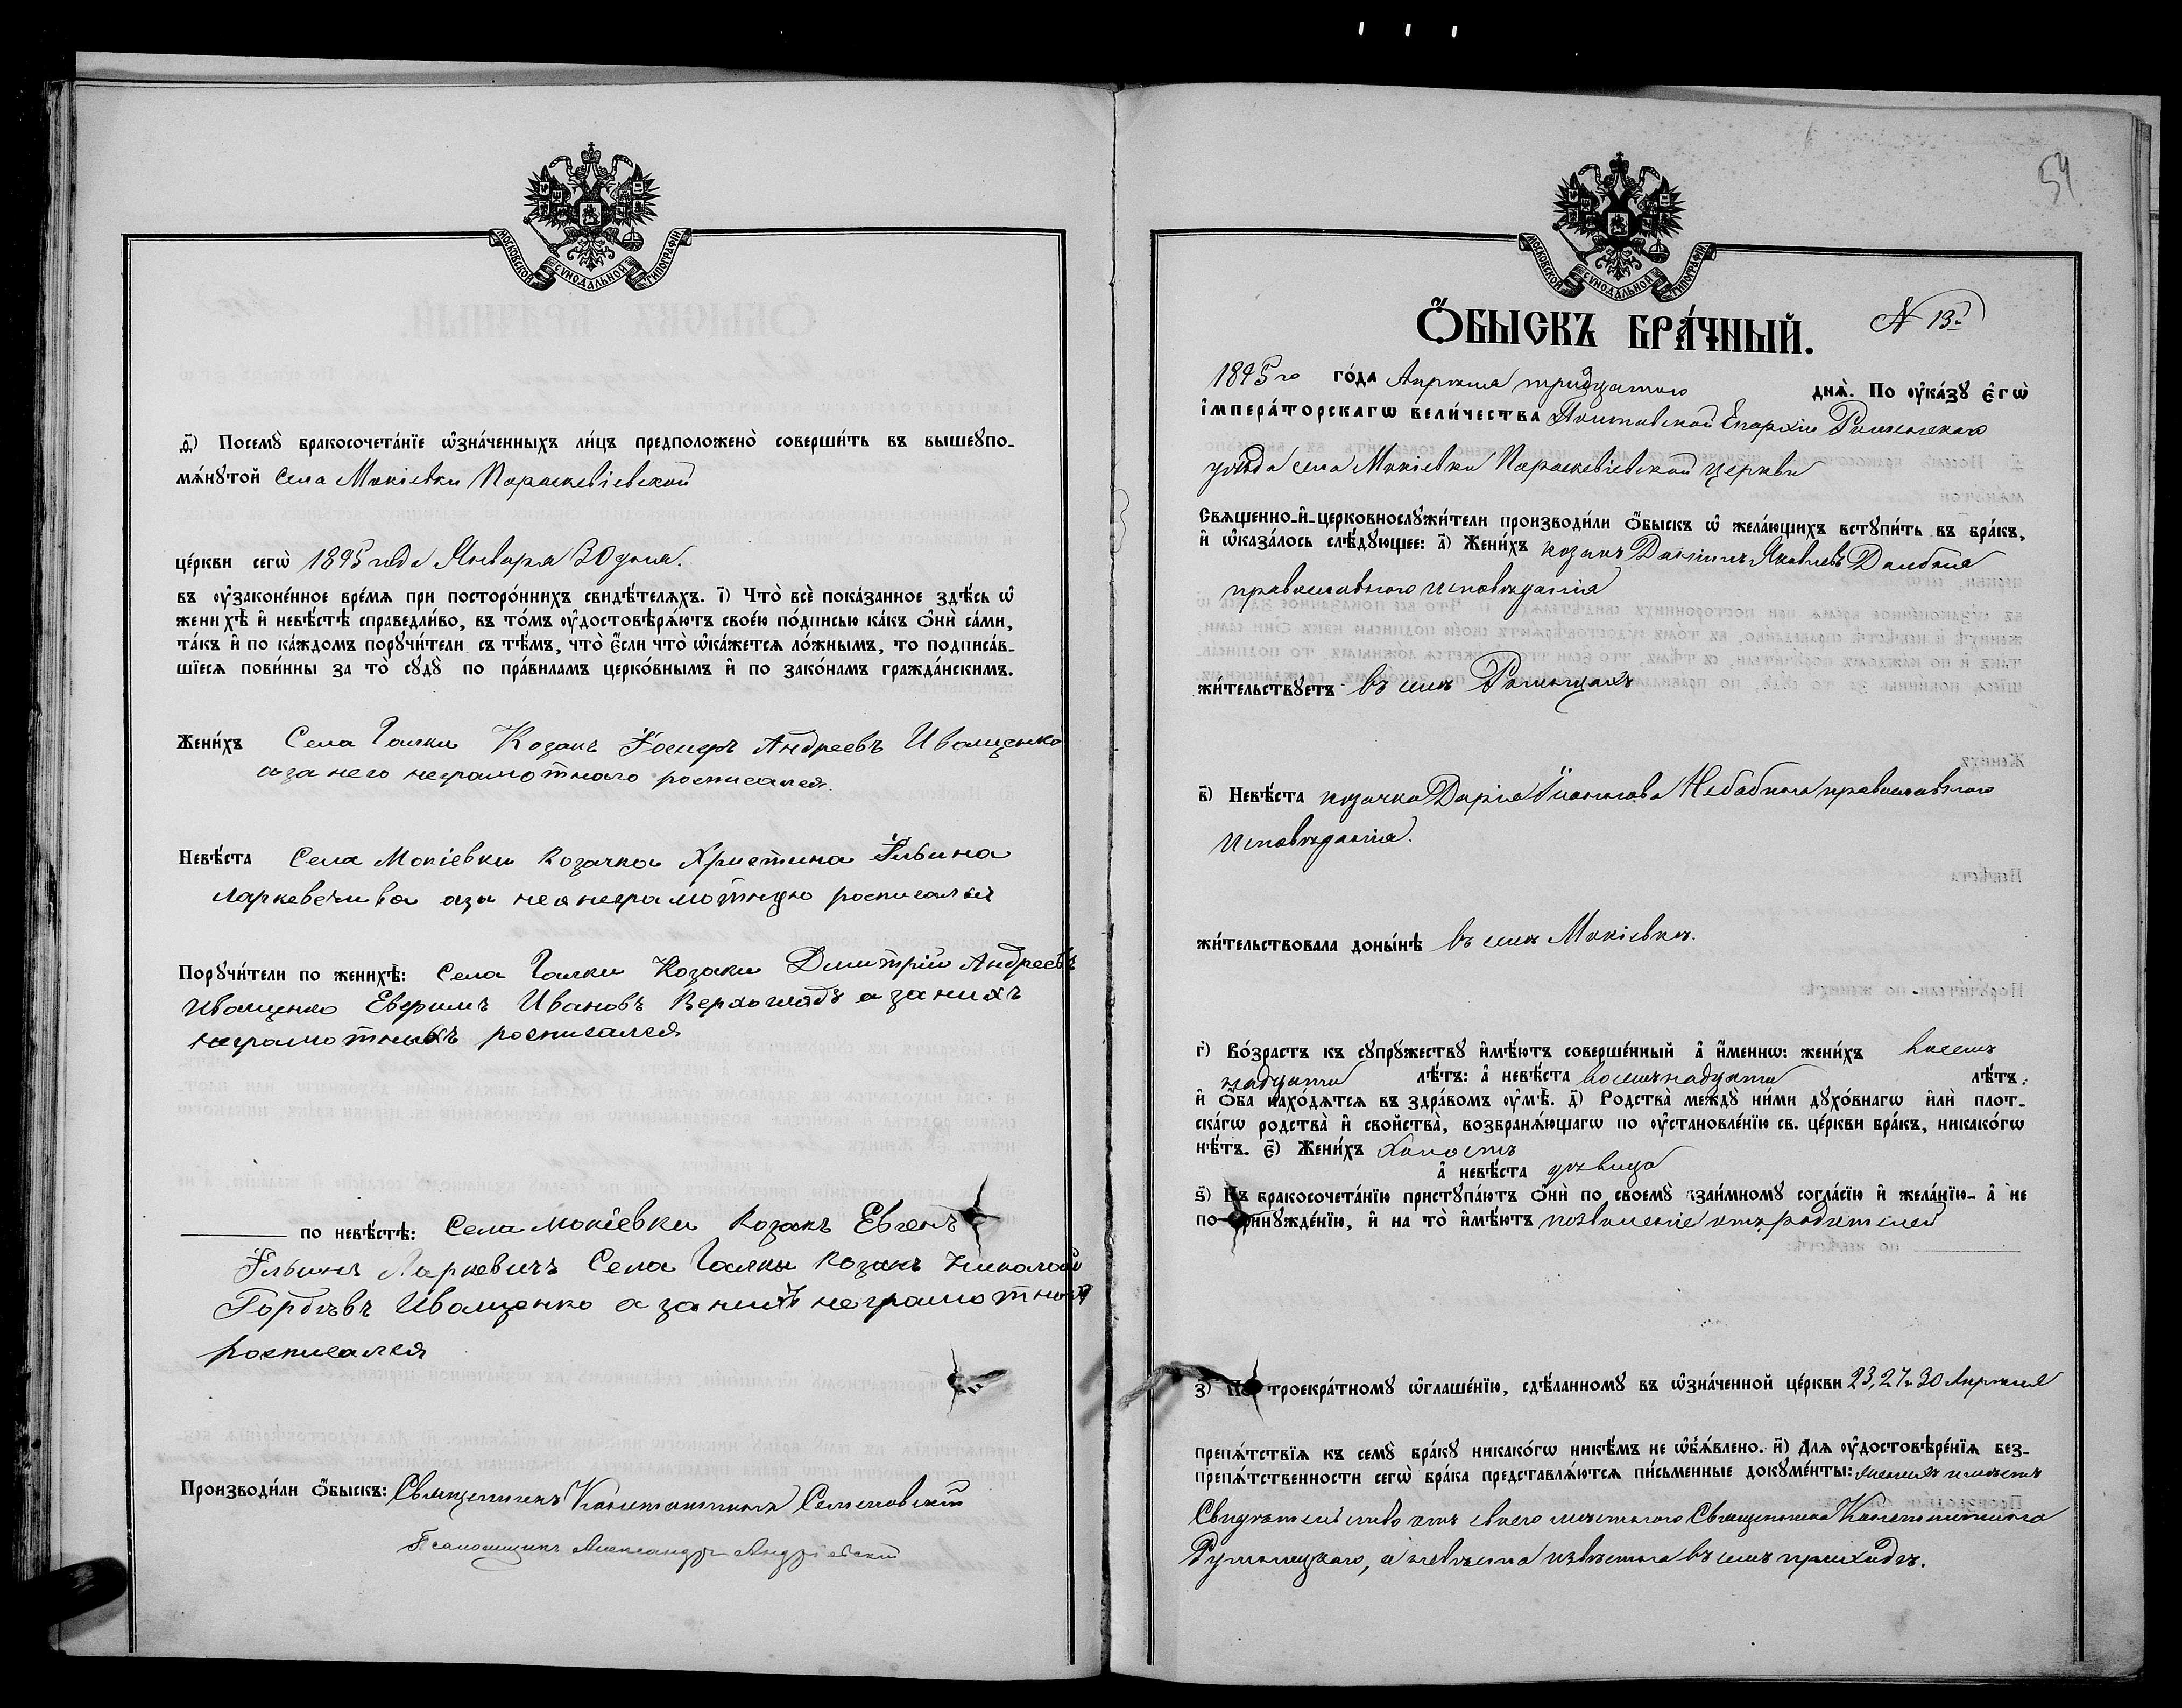 МОСКОВСКОЙ СѴНОДАЛЬНОЙ ТИПОГРАФІИ
д҃і) Посемꙋ̀ бракосочета́нїе ѡ҆зна́ченныхъ ли́цъ предположено̀ соверши́ть въ вышеꙋпо-
мѧ́нꙋтой села Мокіевки Параскевіевской
це́ркви сегѡ̀ 1895 года Января 30 дня.
въ ᲂу҆законе́нное вре́мѧ при посторо́ннихъ свидѣ́телѧхъ. і҃) Что̀ всѐ пока́занное здѣ́сь ѡ҆
женихѣ̀ и҆ невѣ́стѣ справедли́во, въ то́мъ ᲂу҆достовѣрѧ́ютъ свое́ю по́дписью ка́къ ѻ҆нѝ са́ми,
та́къ и҆ по ка́ждомъ порꙋчи́тели съ тѣ́мъ, что̀ є҆́сли что̀ ѡ҆ка́жетсѧ ло́жнымъ, то подписа́в-
шїесѧ пови́нны за то̀ сꙋдꙋ̀ по пра́виламъ церко́внымъ и҆ по зако́намъ гражда́нскимъ.
Жени́хъ Села Галки Козакъ Іосифъ Андреевъ Иващенко
а за него неграмотнаго росписался.
Невѣ́ста Села Мокіевки Козачка Христина Ильина
Ларкевичива а за нея неграмотную росписался
Порꙋчи́тели по женихѣ̀: Села Галки Козаки Дмитрій Андреевъ
Иващенко Евфимъ Ивановъ Верхоглядъ а за нихъ
неграмотныхъ росписался
по невѣ́стѣ: Села Мокіевки Козакъ Евгенъ
Ильинъ Ларкевичъ Села Галки Козакъ Николай
Гордѣевъ Иващенко а за нихъ неграмотныхъ
росписался
Производи́ли ѻ҆́быскъ: Священникъ Константинъ Семеновскій
Псаломщикъ Александръ Андріевскій
54
МОСКОВСКОЙ СѴНОДАЛЬНОЙ ТИПОГРАФІИ
Ѻ҆́БЫСКЪ БРА́ЧНЫЙ. N 13й
1895го го́да Апрѣля тридцатого днѧ̀. По ᲂу҆ка́зꙋ є҆гѡ̀
і҆мпера́торскагѡ вели́чества Полтавской Епархіи Роменскаго
уѣзда села Мокіевки Параскевіевской церкви
Свѧщенно-и҆-церковнослꙋжи́тели производи́ли ѻ҆́быскъ ѡ҆ жела́ющихъ встꙋпи́ть въ бра́къ,
и҆ ѡ҆каза́лось слѣ́дꙋющее: а҃) Жени́хъ козакъ Даніилъ Яковлевъ Далибня
православнаго исповѣданія
жи́тельствꙋетъ въ селѣ Ромнцахъ
в҃) Невѣ́ста козачка Дарія Іоанова Небабина православнаго
исповѣданія.
жи́тельствовала доны́нѣ въ селѣ Мокіевкѣ.
г҃) Во́зрастъ къ сꙋпрꙋ́жествꙋ и҆мѣ́ютъ соверше́нный а҆̀ и҆́менно: жени́хъ восем
надцати лѣ́тъ: а҆̀ невѣ́ста восемнадцати лѣ́тъ:
и҆ ѻ҆́ба нахо́дѧтсѧ въ здра́вомъ ᲂу҆мѣ̀. д҃) Родства̀ междꙋ̀ ни́ми дꙋхо́внагѡ и҆лѝ плот-
ска́гѡ родства̀ и҆ сво́йства̀, возбранѧ́ющагѡ по ᲂу҆становле́нїю св. це́ркви бра́къ, никако́гѡ
нѣ́тъ. є҃) Жени́хъ холостъ
а҆̀ невѣ́ста дѣвица
ѕ҃) Къ бракосочета́нїю пристꙋпа́ютъ ѻ҆нѝ по своемꙋ̀ взаи́мномꙋ согла́сїю и҆ жела́нїю- а҆̀ не
по принꙋжде́нїю, и҆ на то̀ и҆мѣ́ютъ позволеніе отъ родителей
з҃) По троекра́тномꙋ ѡ҆глаше́нїю, сдѣ́ланномꙋ въ ѡ҆зна́ченной це́ркви 23, 27 и 30 Апрѣля
препѧ́тствїѧ къ семꙋ̀ бра́кꙋ никако́гѡ никѣ́мъ не ѡ҆б̾ѧ́влено. и҃) Длѧ ᲂу҆достовѣре́нїѧ без-
препѧ́тственности сегѡ̀ бра́ка представлѧ́ютсѧ пи́сьменные докꙋме́нты: женихъ имѣетъ
Свидѣтельство отъ своего мѣстнаго Священника Константина
Рутницкаго, а невѣста извѣстна въ семъ приходѣ.